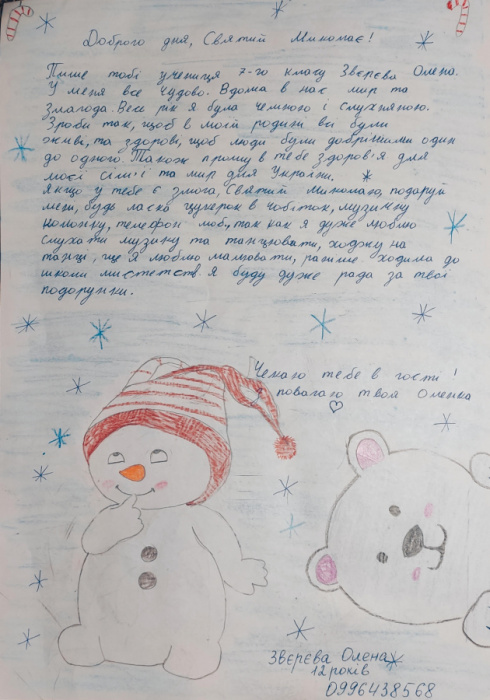 Доброго дня, Святий Миколає!
Пише тобі учениця 7-го класу Звєрєва Олена.
У мене все чудово. Вдома в нас мир та
злагода. Весь рік я була чемною і слухняною.
Зроби так, щоб в моїй родині всі були
живі, та здорові, щоб люди були добрішими один
до одного. Також прошу в тебе здоров'я для
моєї сім'ї та мир для України.
Якщо у тебе є змога, Святий Миколаю, подаруй
мені, будь ласка цукерок в чобіток, музичну
колонку, телефон, бо, так как я дуже люблю
слухати музику та танцювати, ходжу на
танці, ще я люблю малювати, раніше ходила до
школи мистетств. Я буду дуже рада за твої
подарунки.
Чекаю тебе в гості!
З повагою твоя Оленка
Звєрєва Олена
12 років
0996438568